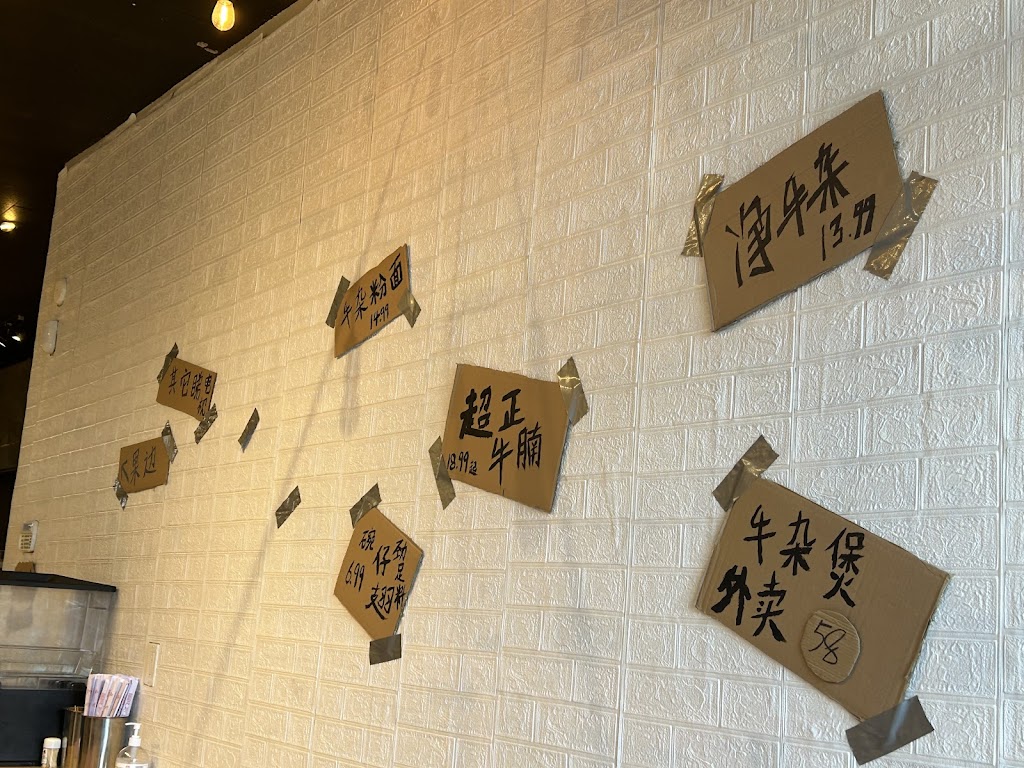 净牛杂
13.99
牛杂粉面
14.99
其它睇电
视
水果边
超正
牛腩
18.99起
劲
足
料
碗
仔
翅
6.99
牛杂煲
外卖
58